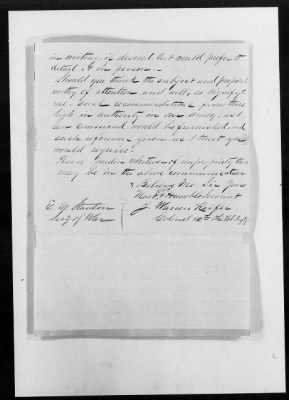 in writing if desired but would prefer to
detail it in person.
Should you think the subject and proposal
worthy of attention and will, so signify to
me. Such recommendations from those
high in authority in our Army, as I
can command would be furnished, and
such references given as I trust you
would require.
Please pardon whatever of impropriety there
may be in the above communication
& Believe Me Sir Your
Most Humble Servant
J Warren Keifer
E. M. Stanton
Colonel 110th Ohio Vol Infty
Secy of War